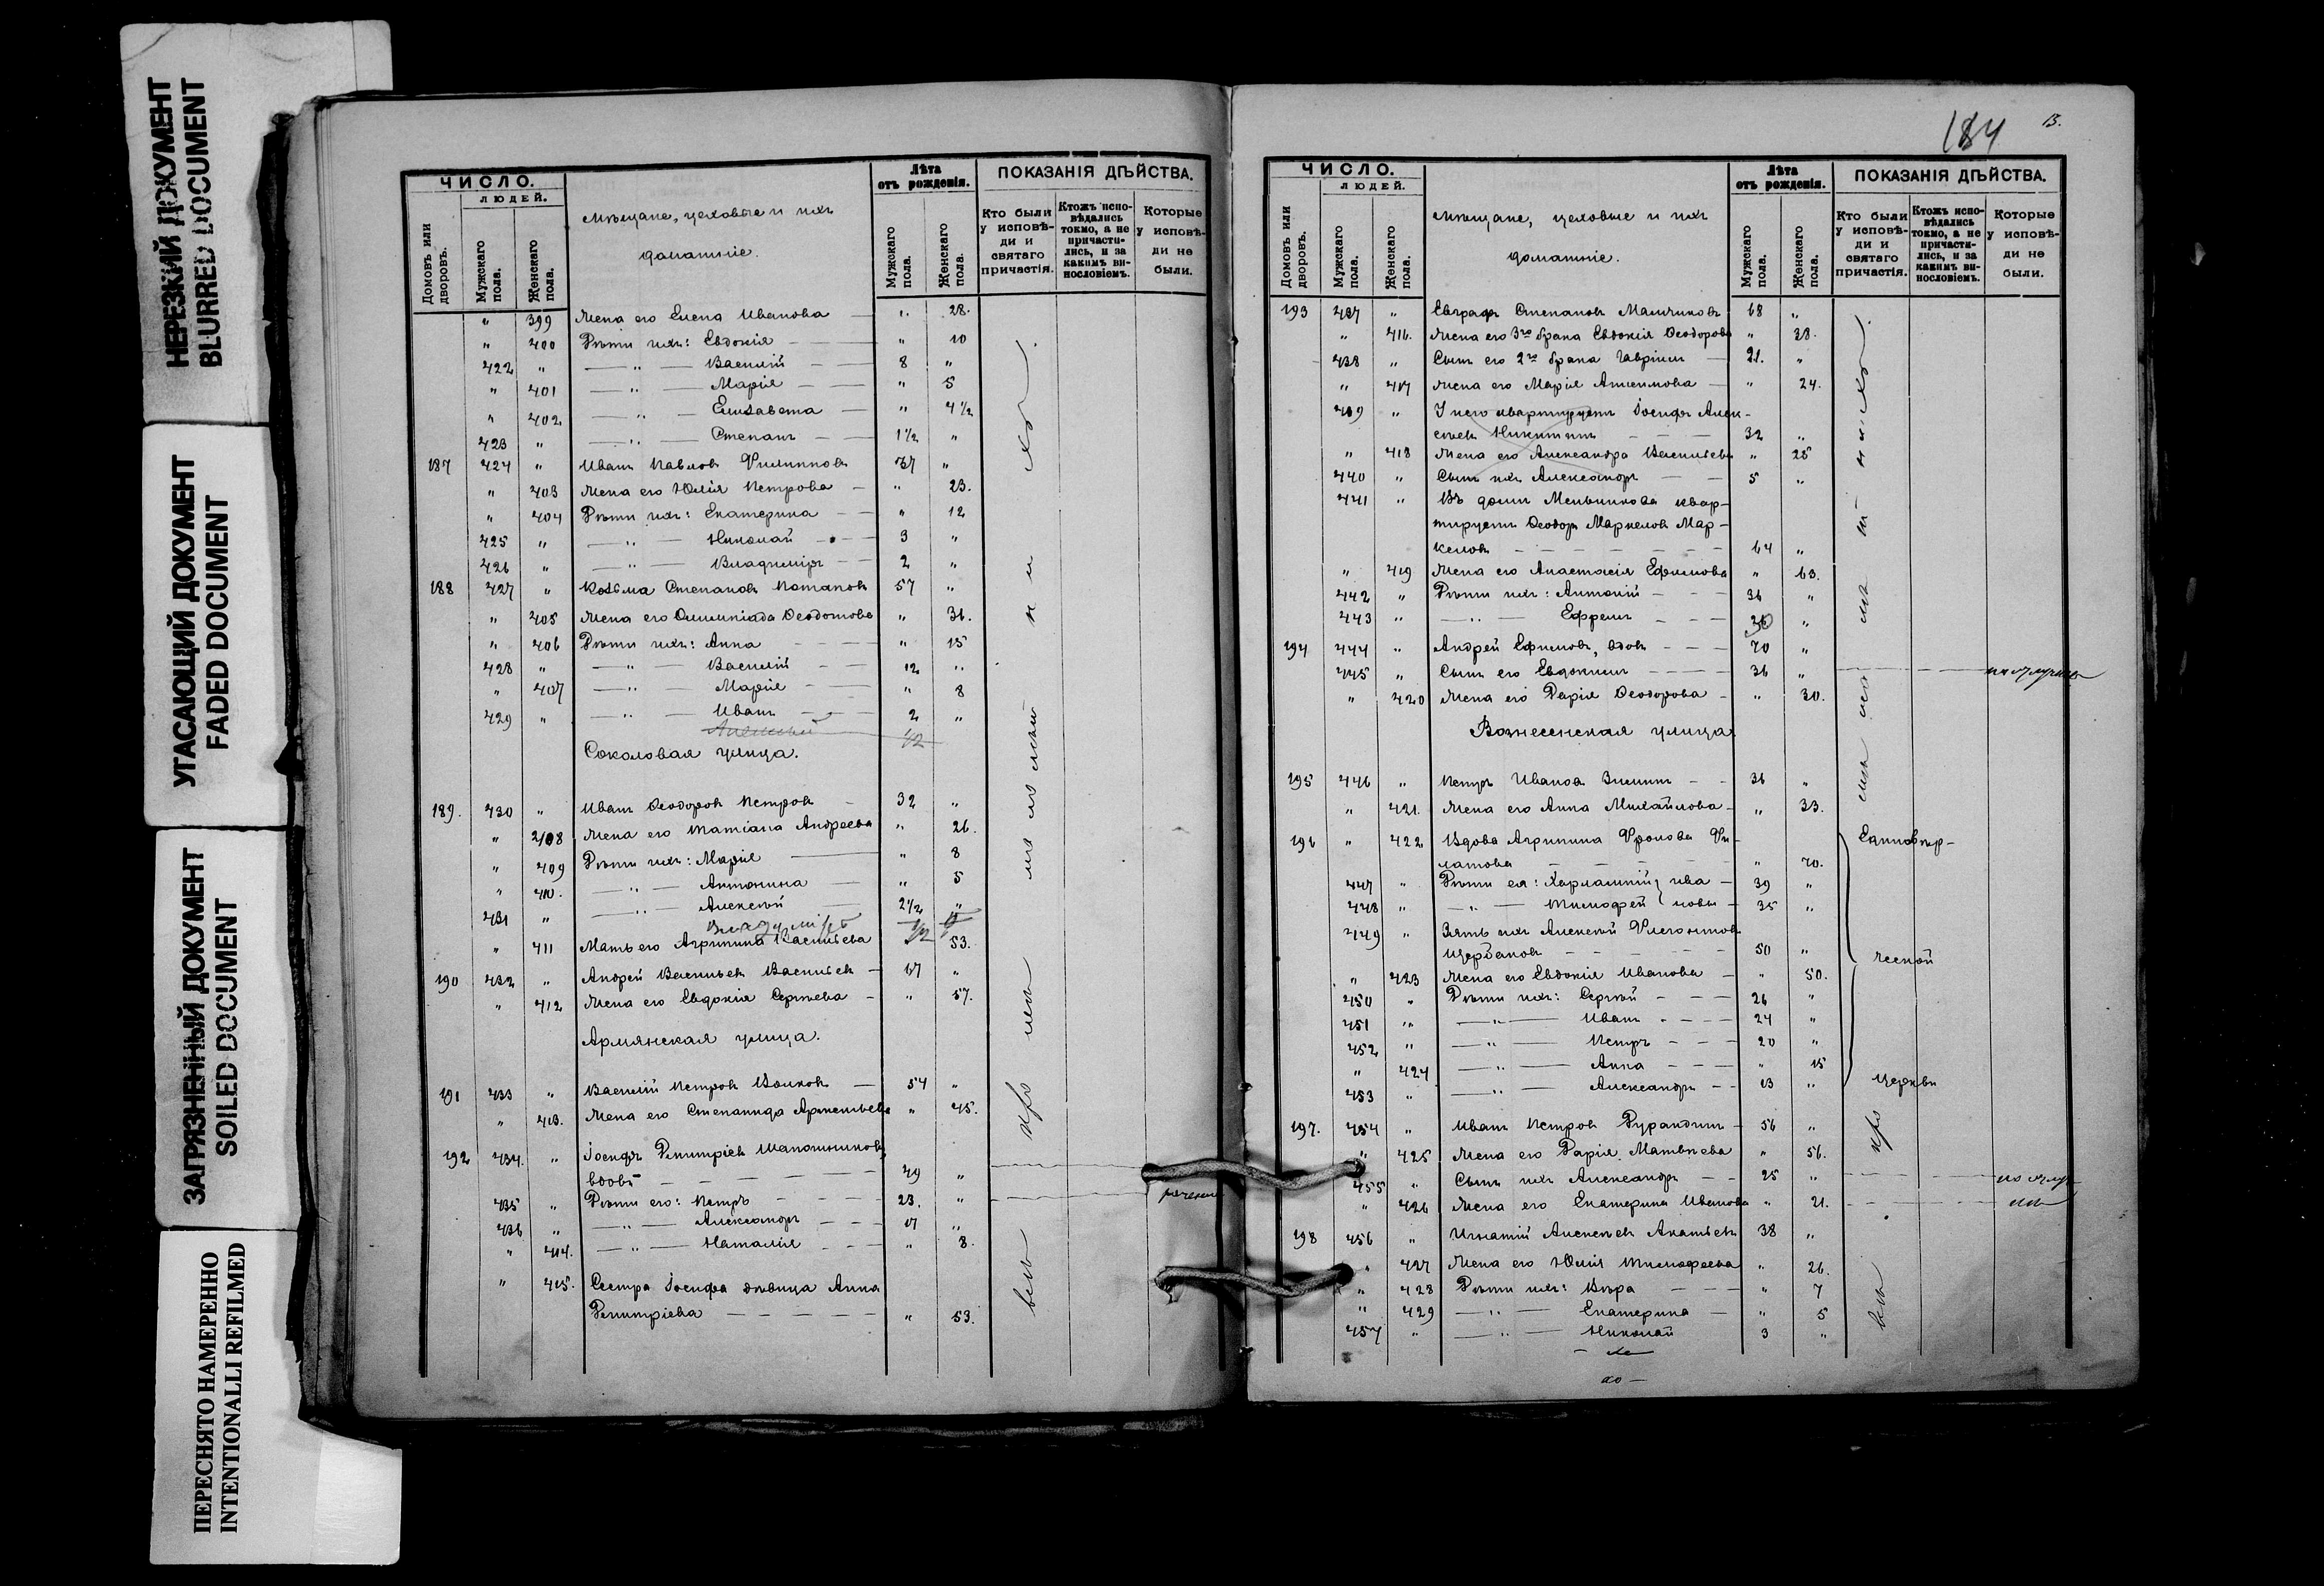 НЕРЕЗКИЙ ДОКУМЕНТ
BLURRED DOCUMENT
УГАСАЮЩИЙ ДОКУМЕНТ
FADED DOCUMENT
ЗАГРЯЗНЕННЫЙ ДОКУМЕНТ
SOILED DOCUMENT
ПЕРЕСНЯТО НАМЕРЕННО
INTENTIONALLI REFILMED
ЧИСЛО.
ЛЮДЕЙ.
Домовъ или дворовъ.
Мужскаго пола.
Женскаго пола.
Мѣщане, цеховые и ихъ
домашніе.
Лѣта
отъ рожденія.
Мужскаго пола.
Женскаго пола.
ПОКАЗАНІЯ ДѢЙСТВА.
Кто были у исповѣди и святаго причастія.
Ктожъ исповѣдались токмо, а не причастились, и за какимъ винословіемъ.
Которые у исповѣди не были.
" 399 Жена его Елена Иванова — " 28.
" 400 Дѣти ихъ: Евдокія — " 10
422 " — " — Василій — 8 "
" 401 — " — Марія — " 5
" 402 — " — Елизавета — " 4 1/2
423 " — " — Степанъ — 1 1/2 "
187 424 " Иванъ Павловъ Филипповъ 37 "
" 403 Жена его Юлія Петрова — " 23.
" 404 Дѣти ихъ: Екатерина — " 12
425 " — " — Николай — 3 "
426 " — " — Владиміръ — 2 "
188 427 " Козьма Степановъ Потаповъ 57 "
" 405 Жена его Олимпіада Ѳеодотова " 36.
" 406 Дѣти ихъ: Анна " 15
428 " — " — Василій — 12 "
" 407 — " — Марія — " 8
429 " — " — Иванъ — 2 "
Алексѣй 1/2
Соколовая улица.
189. 430 " Иванъ Ѳеодоровъ Петровъ — 32 "
" 408 Жена его Татіана Андреева " 26.
" 409 Дѣти ихъ: Марія — " 8
" 410. — " — Антонина — " 5
431 " — " — Алексѣй — 2 1/2 "
Владиміръ 1/2
" 411 Мать его Агрипина Васильева 53.
190 432 " Андрей Васильевъ Васильевъ — 67 "
" 412 Жена его Евдокія Сергѣева — " 57.
Армянская улица.
191 433 " Василій Петровъ Волковъ — 54 "
" 413. Жена его Степанида Артемьева " 45.
192 434. " Іосифъ Димитріевъ Шапошниковъ,
вдовъ — 49 "
435 " Дѣти его: Петръ — 23. "
436 " — " — Александръ — 17 "
" 414. — " — Наталія — " 8.
" 415. Сестра Іосифа дѣвица Анна
Димитріева — " 53.
184
13.
ЧИСЛО.
ЛЮДЕЙ.
Домовъ или дворовъ.
Мужскаго пола.
Женскаго пола.
Мѣщане, цеховые и ихъ
домашніе.
Лѣта
отъ рожденія.
Мужскаго пола.
Женскаго пола.
ПОКАЗАНІЯ ДѢЙСТВА.
Кто были у исповѣди и святаго причастія.
Ктожъ исповѣдались токмо, а не причастились, и за какимъ винословіемъ.
Которые у исповѣди не были.
193 437 " Евграфъ Степановъ 68 "
" 416. Жена его 3го брака Евдокія Ѳеодорова " 38.
438 " Сынъ его 2го брака Гавріилъ — 21. "
" 417 Жена его Марія — " 24.
439 " У него квартируетъ Іосифъ Алек-
сѣевъ Никитинъ — 32 "
" 418 Жена его Александра Васильева " 25
440 " Сынъ ихъ Александръ — 5 "
441 " Въ домѣ Мельникова квар-
тируетъ Ѳеодоръ Маркеловъ Мар-
келовъ — 64 "
" 419 Жена его Анастасія Ефимова " 63.
442 " Дѣти ихъ: Антоній — 36 "
443 " — " — Ефремъ — 26 "
194 444 " Андрей Ефимовъ, вдовъ — 70 "
445 " Сынъ его Евдокимъ — 36 "
" 420 Жена его Дарія Ѳеодорова — " 30.
Вознесенская улица.
195 446 " Петръ Ивановъ Зиминъ — 36 "
" 421. Жена его Анна Михайлова — " 33.
196 " 422 Вдова Агрипина Фролова Фи-
латова — " 70.
447 " Дѣти ея: Харлампій Ива — 39 "
448 " — " — Тимофей новы — 35 "
449 " Зять ихъ Алексѣй Флегонтовъ
Щербаковъ — 50 "
" 423 Жена его Евдокія Иванова — " 50.
450 " Дѣти ихъ: Сергѣй — 26 "
451 " — " — Иванъ — 24 "
452 " — " — Петръ — 20 "
" 424 — " — Анна — " 15
453 " — " — Александръ — 13 "
Единовѣр-
ческой
церкви
197. 454 " Иванъ Петровъ Дурандинъ — 56 "
" 425 Жена его Дарія Матвѣева " 56.
455 " Сынъ ихъ Александръ — 25 "
" 426 Жена его Екатерина Иванова " 21.
198 456 " Игнатій Алексѣевъ Акатьевъ 38 "
" 427 Жена его Юлія Тимофеева " 26.
" 428 Дѣти ихъ: Вѣра — " 7
" 429 — " — Екатерина — " 5
457 " — " — Николай 3 "